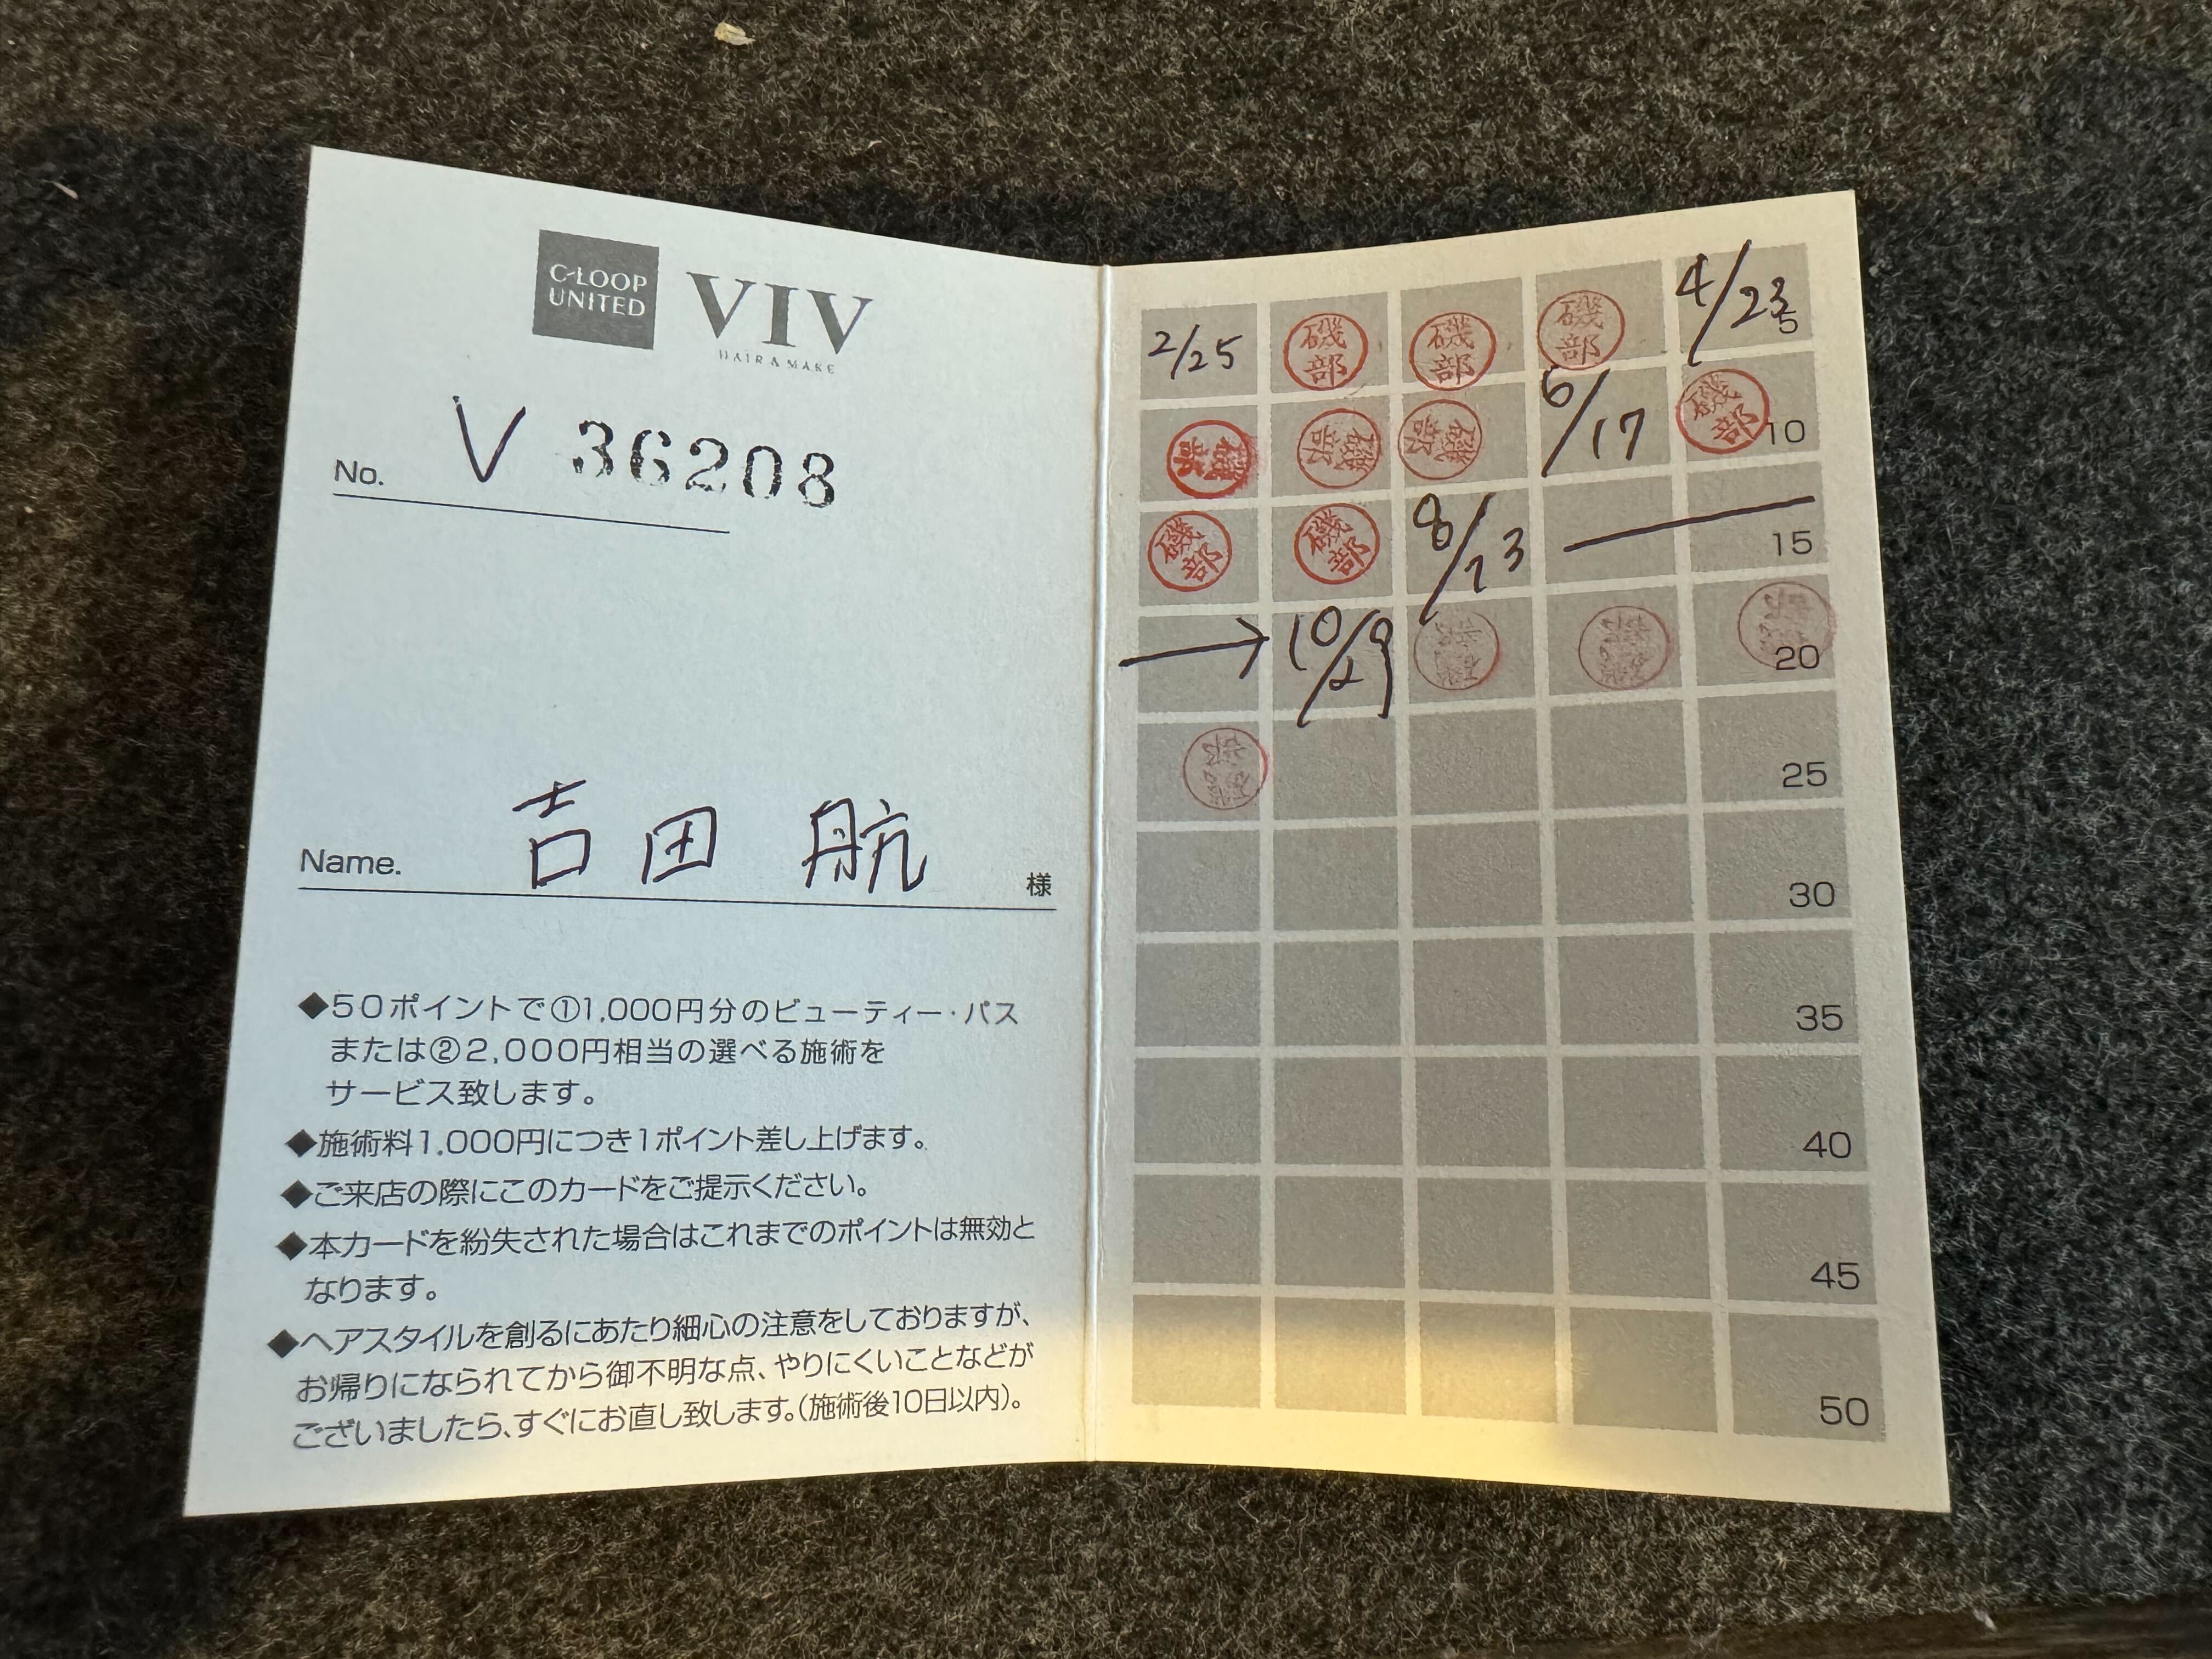 C-LOOP
UNITED
VIV
HAIR & MAKE
No. V 36208
Name. 吉田 航 様
◆50ポイントで①1,000円分のビューティー・パス
または②2,000円相当の選べる施術を
サービス致します。
◆施術料1,000円につき1ポイント差し上げます。
◆ご来店の際にこのカードをご提示ください。
◆本カードを紛失された場合はこれまでのポイントは無効と
なります。
◆ヘアスタイルを創るにあたり細心の注意をしておりますが、
お帰りになられてから御不明な点、やりにくいことなどが
ございましたら、すぐにお直し致します。(施術後10日以内)。
2/25 磯部 磯部 磯部 4/23 5
磯部 磯部 磯部 6/17 磯部 10
磯部 磯部 8/13 15
→ 10/29 磯部 磯部 磯部 20
磯部 25
30
35
40
45
50